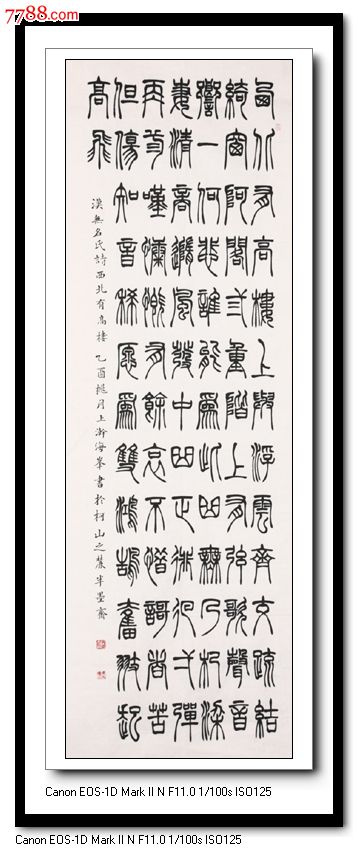 7788.com
西北有高樓上與浮雲齊交疏結
綺窗阿閣三重階上有弦歌聲音
響一何悲誰能為此曲無乃杞梁
妻清商隨風發中曲正徘徊一彈
再三嘆慷慨有餘哀不惜歌者苦
但傷知音稀願為雙鴻鵠奮翅起
高飛
漢無名氏詩西北有高樓 乙酉桃月上澣海峯書於柯山之麓半墨齋
Canon EOS-1D Mark II N F11.0 1/100s ISO125
Canon EOS-1D Mark II N F11.0 1/100s ISO125